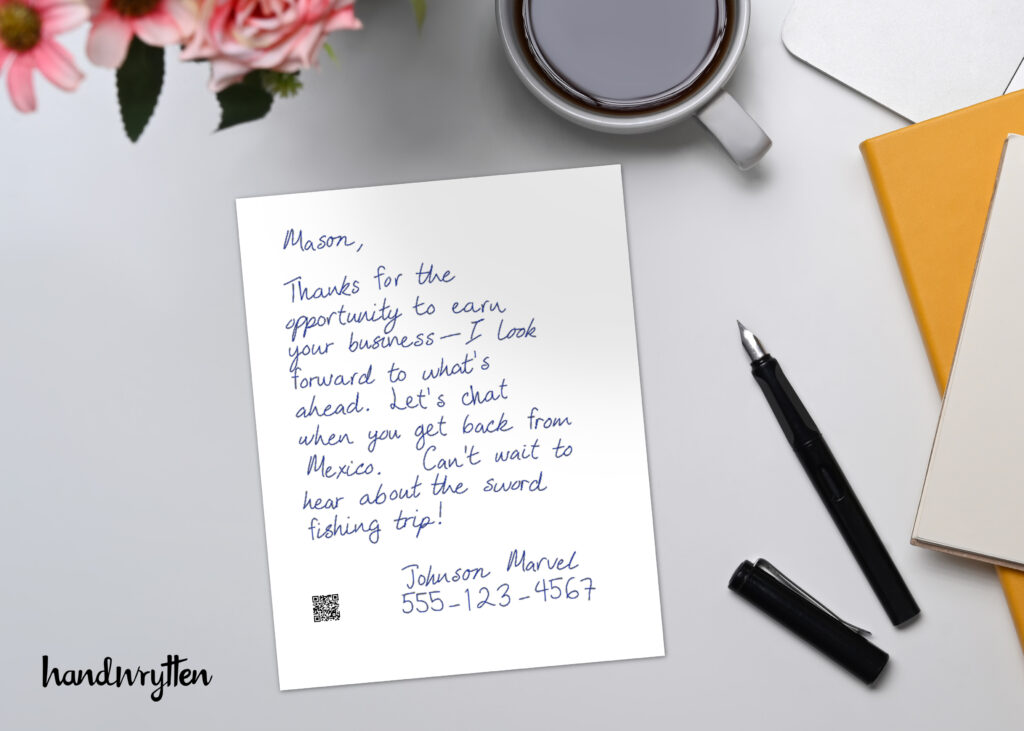 Mason,
Thanks for the
opportunity to earn
your business—I look
forward to what's
ahead. Let's chat
when you get back from
Mexico. Can't wait to
hear about the sword
fishing trip!
Johnson Marvel
555-123-4567
handwrytten